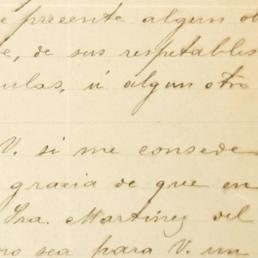 presente algun
de sus respetables
ú algun otro
V. si me consede
gracia de que en
Sra. Martinez del
sea para V. un